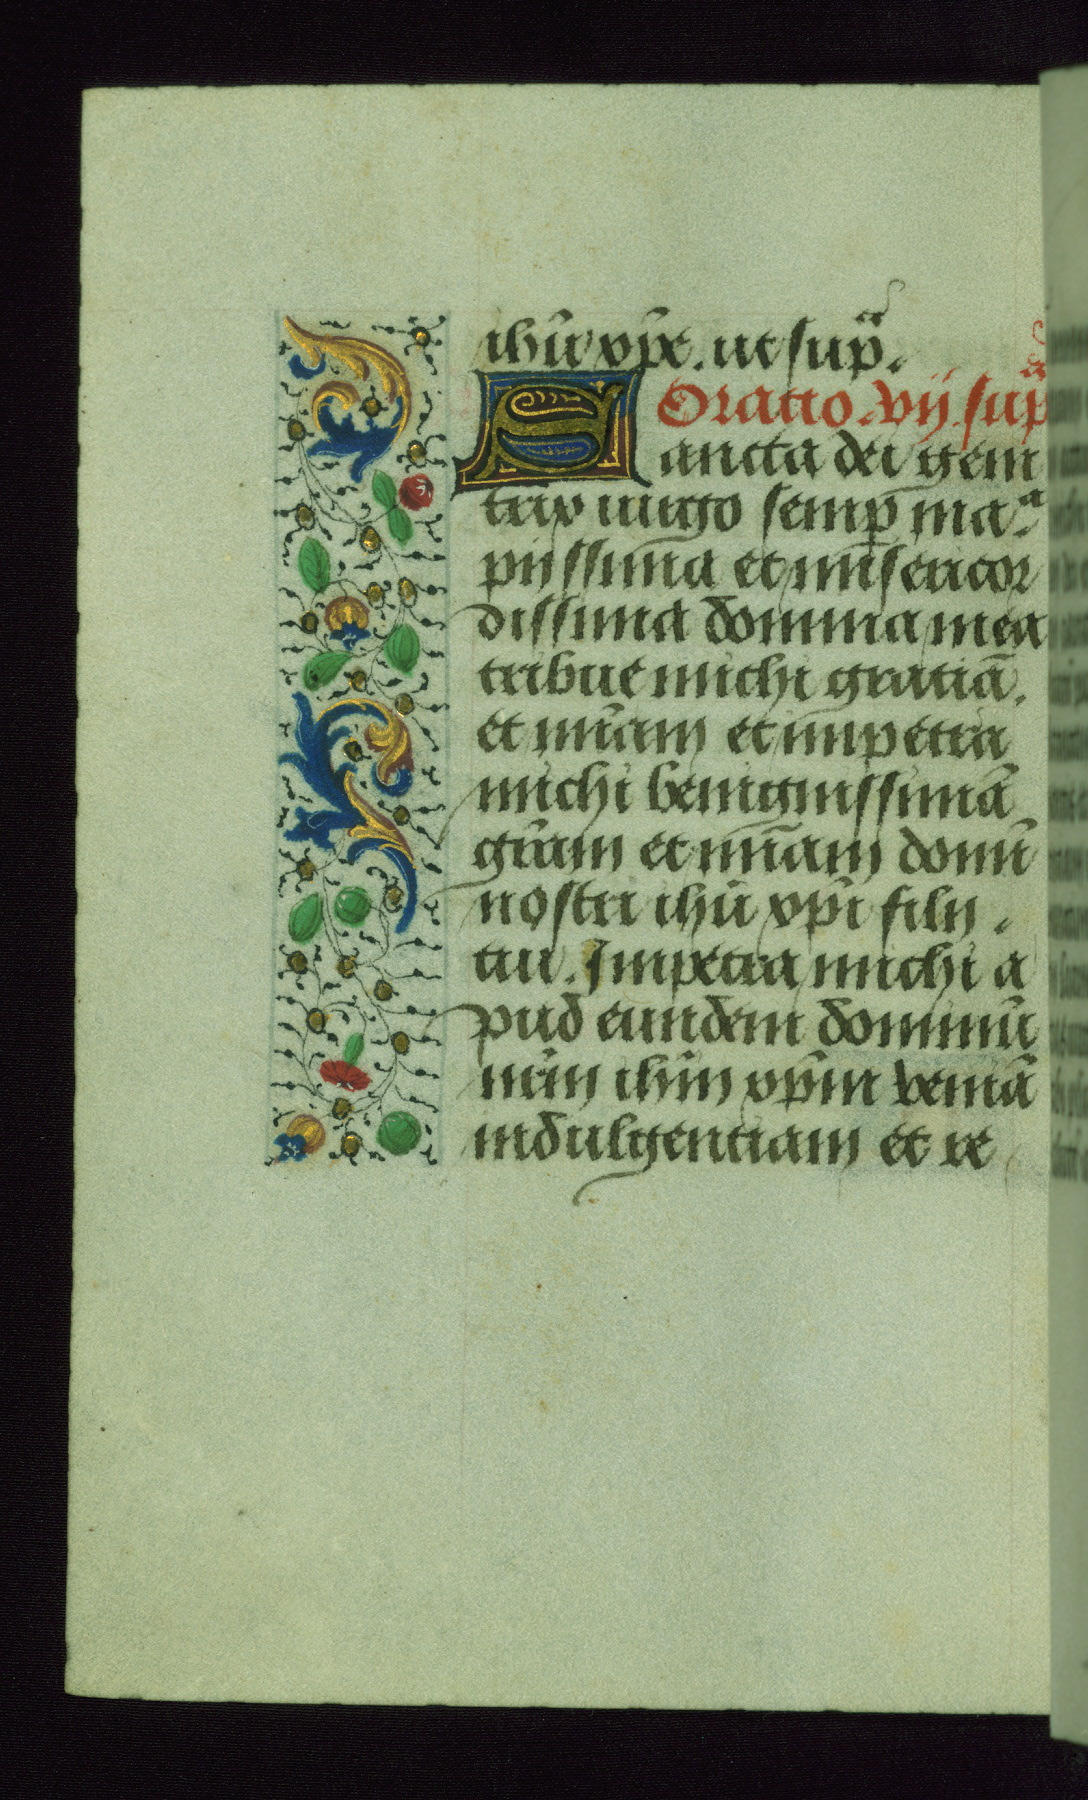 ihū xp̄e. ut sup̄ᵃ.
Oratio .vij. sup̄ᵃ
Sancta dei geni
trix uirgo semp̄ maᵃ
piissima et misericor
dissima domina mea
tribue michi gratiā.
et mīam et impetra
michi benignissimā
grām et mīam domī
nostri ihū xpī filii .
tui. Impetra michi a
pud eundem dominū
nrm̄ ihm̄ xpm̄ veniā
indulgentiam et re